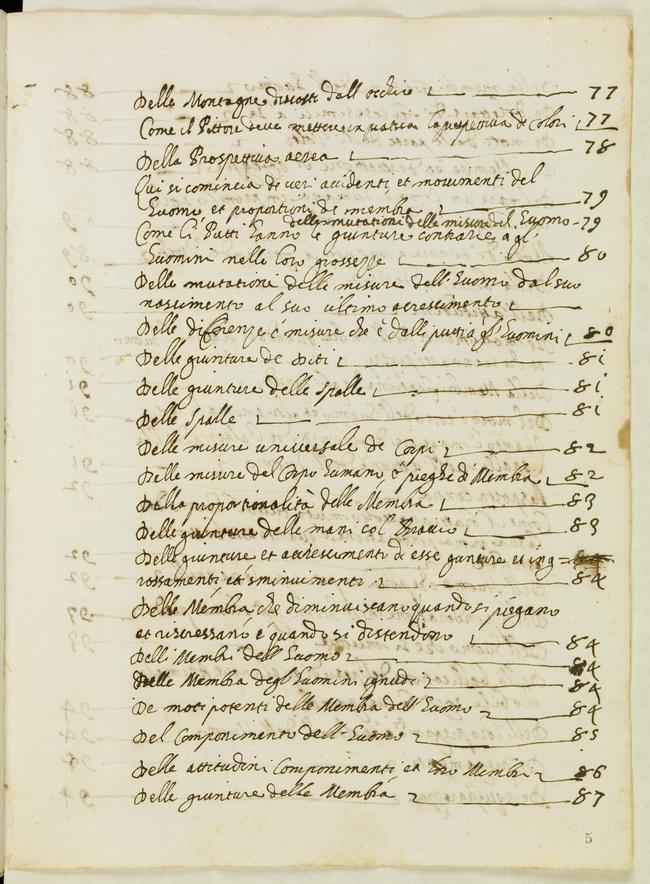 Delle Montagne discosti dall' occhio 77
Come il Pittore deve mettere in pratica la prospettiva de Colori 77
Della Prospettiva aerea 78
Qui si comincia de veri accidenti et movimenti del
Huomo, et proportioni de membra 79
delle mutationi delle misure del Huomo - 79
Come li Putti hanno le giunture contrarie agl'
Huomini nelle loro grossezze 80
Delle mutationi delle misure dell' Huomo dal suo
nascimento al suo ultimo accrescimento
Delle differenze é misure che é dalli putti agl' Huomini 80
Delle giunture de Diti 81
Delle giunture delle spalle 81
Delle spalle 81
Delle misure universale de Corpi 82
Delle misure del Corpo humano, é pieghe di Membra 82
Della proportionalità delle Membra 83
Delle giunture delle mani col' Braccio 83
Delle giunture et accrescimenti di esse giunture et ing=
rossamenti et sminuimenti 84
Delle Membra che diminuiscano quando si piegano
et ricressano é quando si distendono 84
Delli Membri dell' Huomo 84
Delle Membra degl' Huomini ignudi 84
De moti potenti delle Membra dell' Huomo 84
Del Componimento dell' Huomo 85
Delle attitudini Componimenti, et loro Membri 86
Delle giunture delle Membra 87
5